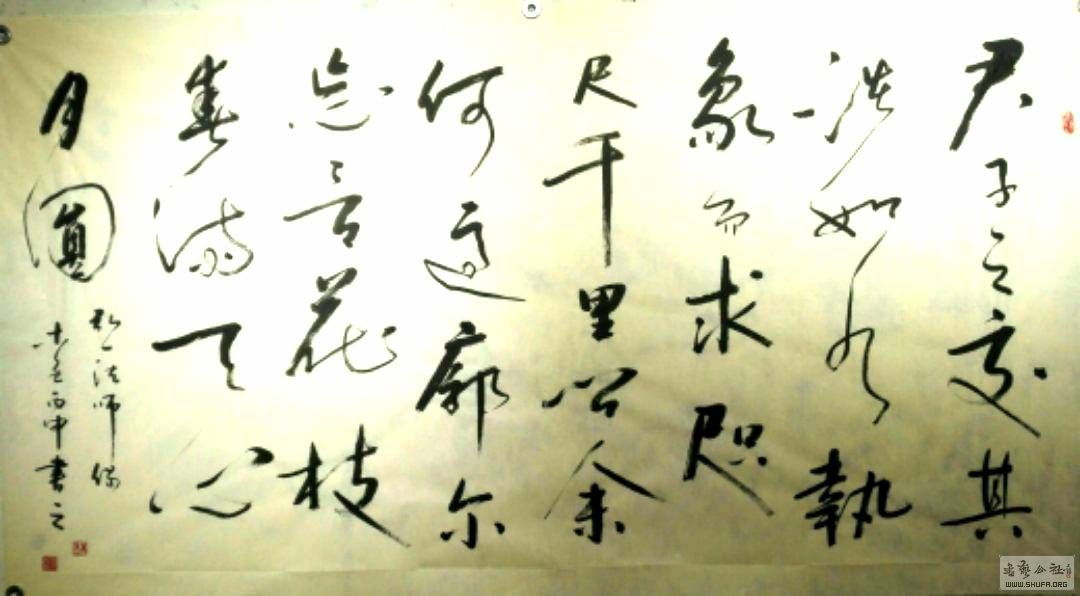 君子之交其
淡如水執
象而求咫
尺千里問余
何適廓尔
忘言花枝
春滿天心
月圓
弘一法師偈
丙申書之
書藝公社
WWW.SHUFA.ORG